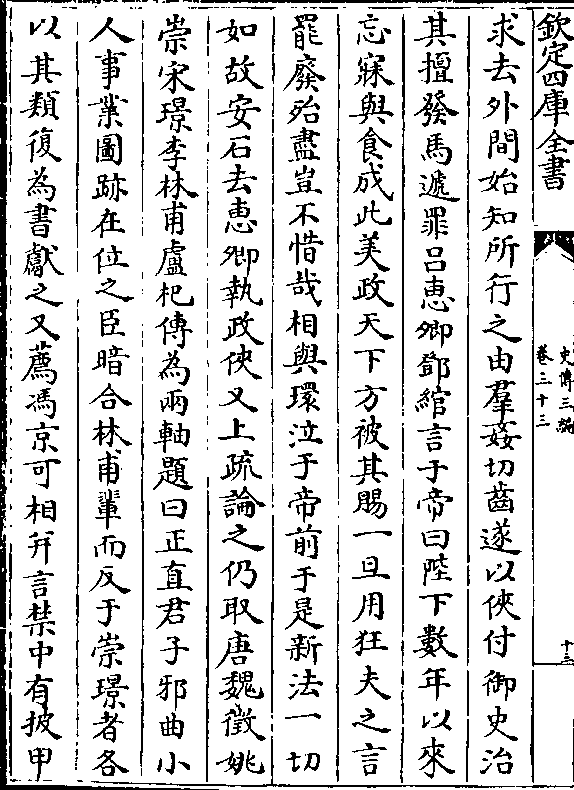 欽定四庫全書
史傳三編
卷三十三
十三
求去外間始知所行之由羣姦切齒遂以俠付御史治
其擅發馬遞罪吕惠卿鄧綰言于帝曰陛下數年以來
忘寐與食成此美政天下方被其賜一旦用狂夫之言
罷廢殆盡豈不惜哉相與環泣于帝前于是新法一切
如故安石去惠卿執政俠又上疏論之仍取唐魏徵姚
崇宋璟李林甫盧杞傳為兩軸題曰正直君子邪曲小
人事業圖跡在位之臣暗合林甫輩而反于崇璟者各
以其類復為書獻之又薦馮京可相并言禁中有披甲